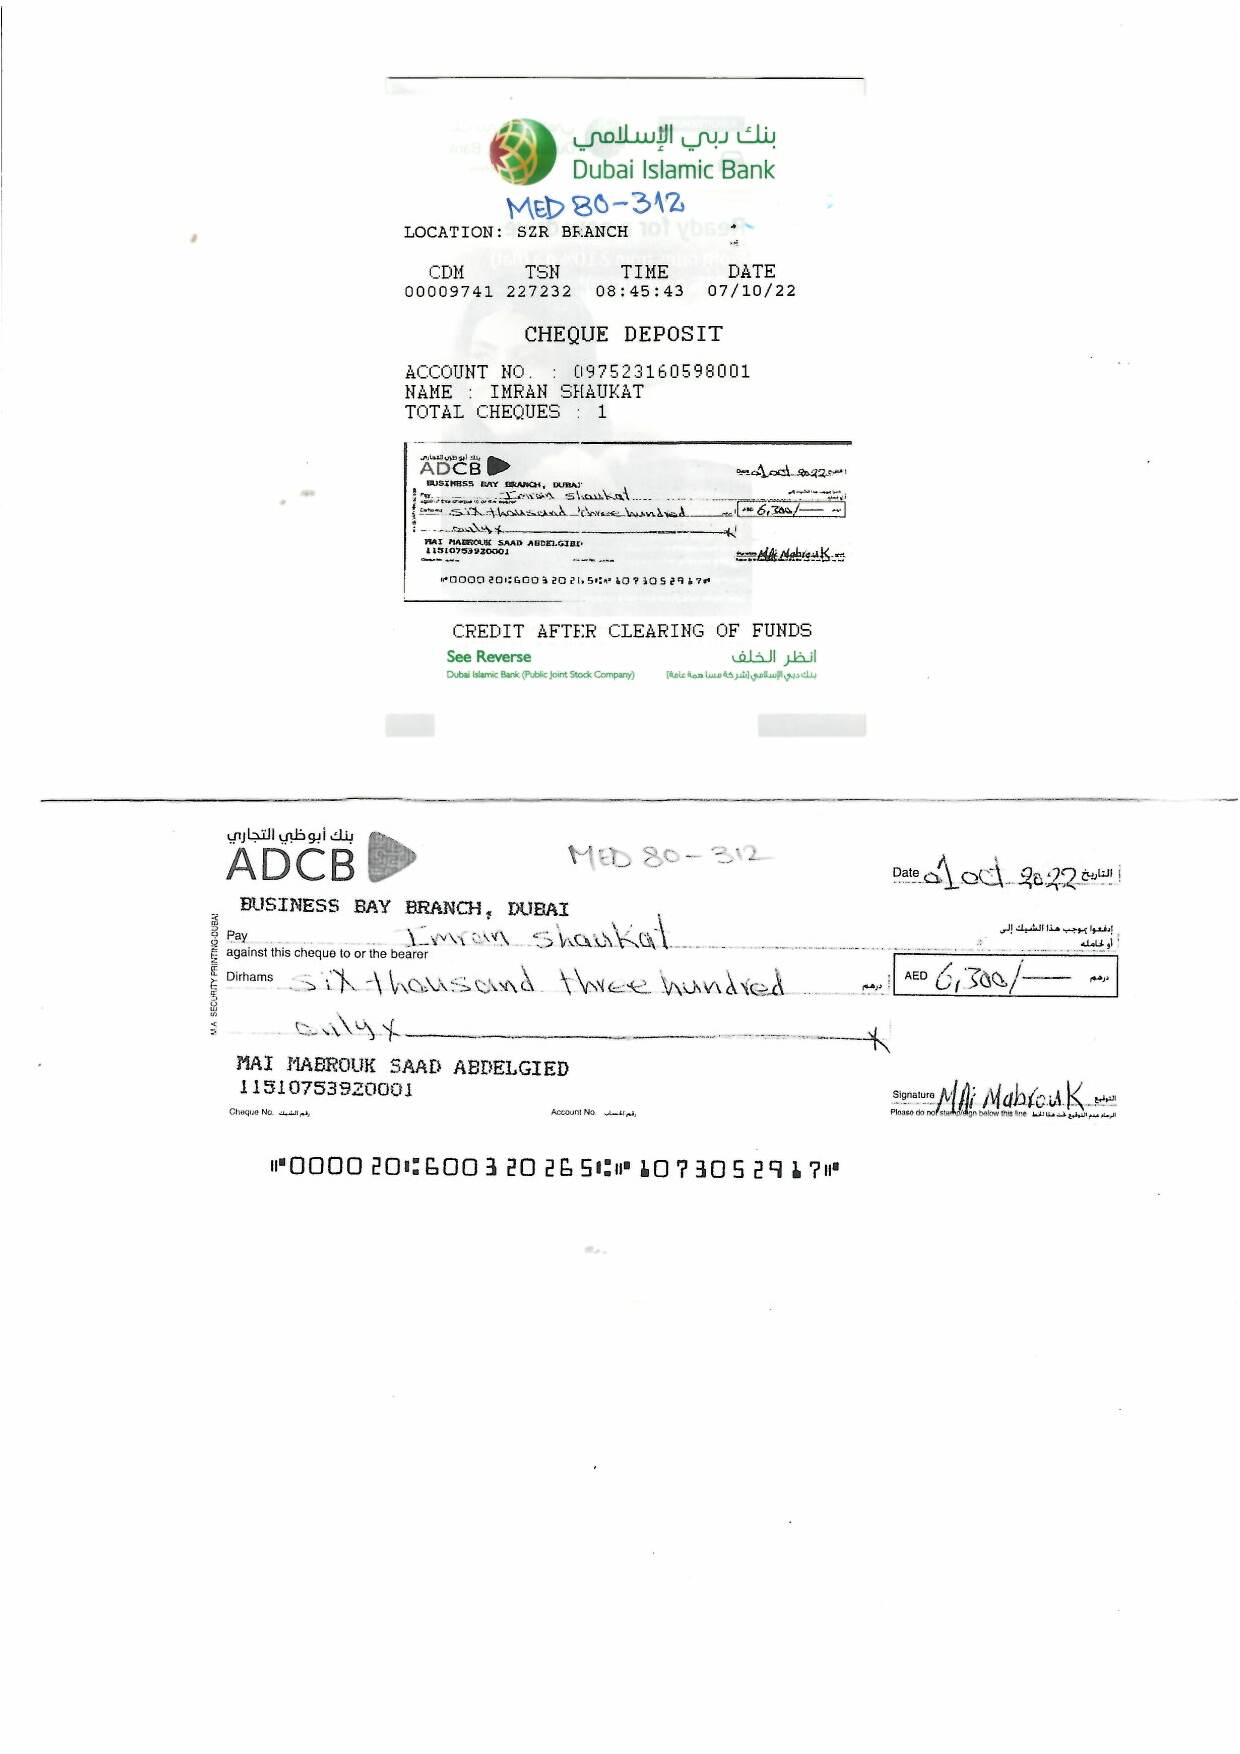 بنك دبي الإسلامي
Dubai Islamic Bank
MED 80-312
LOCATION: SZR BRANCH
CDM TSN TIME DATE
00009741 227232 08:45:43 07/10/22
CHEQUE DEPOSIT
ACCOUNT NO. : 097523160598001
NAME : IMRAN SHAUKAT
TOTAL CHEQUES : 1
بنك أبوظبي التجاري
ADCB
Date 01 oct 2022
BUSINESS BAY BRANCH, DUBAI
Pay Imran Shaukat
Dirhams six thousand three hundred AED 6,300/-
only x
MAI MABROUK SAAD ABDELGIED
11510753920001
MAi MabrouK
⑈000020⑆600320265⑆⑈1073052917⑈
CREDIT AFTER CLEARING OF FUNDS
See Reverse انظر الخلف
Dubai Islamic Bank (Public Joint Stock Company) بنك دبي الإسلامي (شركة مساهمة عامة)
بنك أبوظبي التجاري
ADCB
MED 80-312
Date 01 oct 2022 التاريخ
BUSINESS BAY BRANCH, DUBAI
M.A. SECURITY PRINTING-DUBAI
Pay Imran Shaukat إدفعوا بموجب هذا الشيك إلى
against this cheque to or the bearer أو لحامله
Dirhams six thousand three hundred درهم AED 6,300/- درهم
only x
MAI MABROUK SAAD ABDELGIED
11510753920001
Signature MAi MabrouK التوقيع
Cheque No. رقم الشيك Account No. رقم الحساب Please do not stamp/sign below this line الرجاء عدم التوقيع تحت هذا الخط
⑈000020⑆600320265⑆⑈1073052917⑈